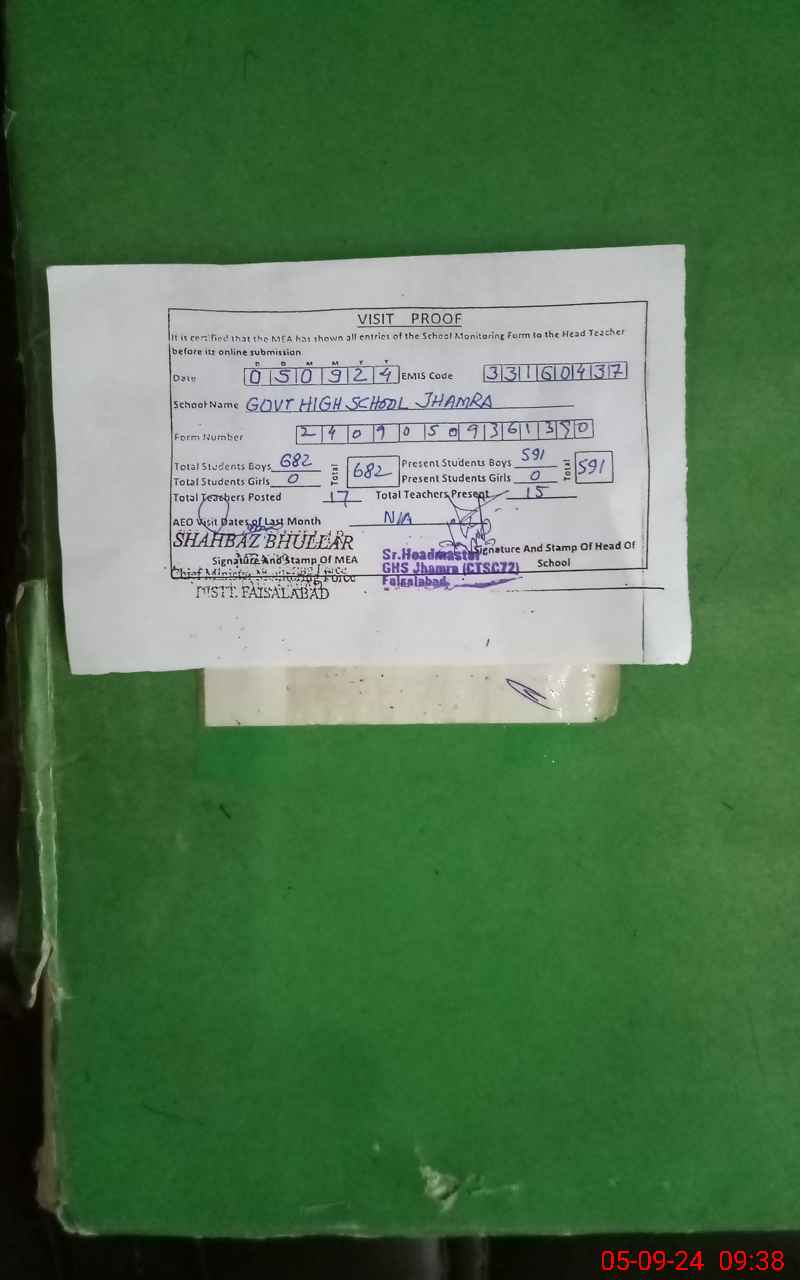 VISIT PROOF
It is certified that the MEA has shown all entries of the School Monitoring Form to the Head Teacher
before its online submission
D D M M Y Y
Date 050924 EMIS Code 33160437
School Name GOVT HIGH SCHOOL JHAMRA
Form Number 240905093613
Total Students Boys 682 Total 682 Present Students Boys 591 Total 591
Total Students Girls 0 Present Students Girls 0
Total Teachers Posted 17 Total Teachers Present 15
AEO Visit Dates of Last Month N/A
SHAHBAZ BHULLAR
Signature And Stamp Of MEA
Chief Minister Monitoring Force
DISTT. FAISALABAD
Sr.Headmaster
GHS Jhamra (CTSC72)
Faisalabad
Signature And Stamp Of Head Of
School
05-09-24 09:38